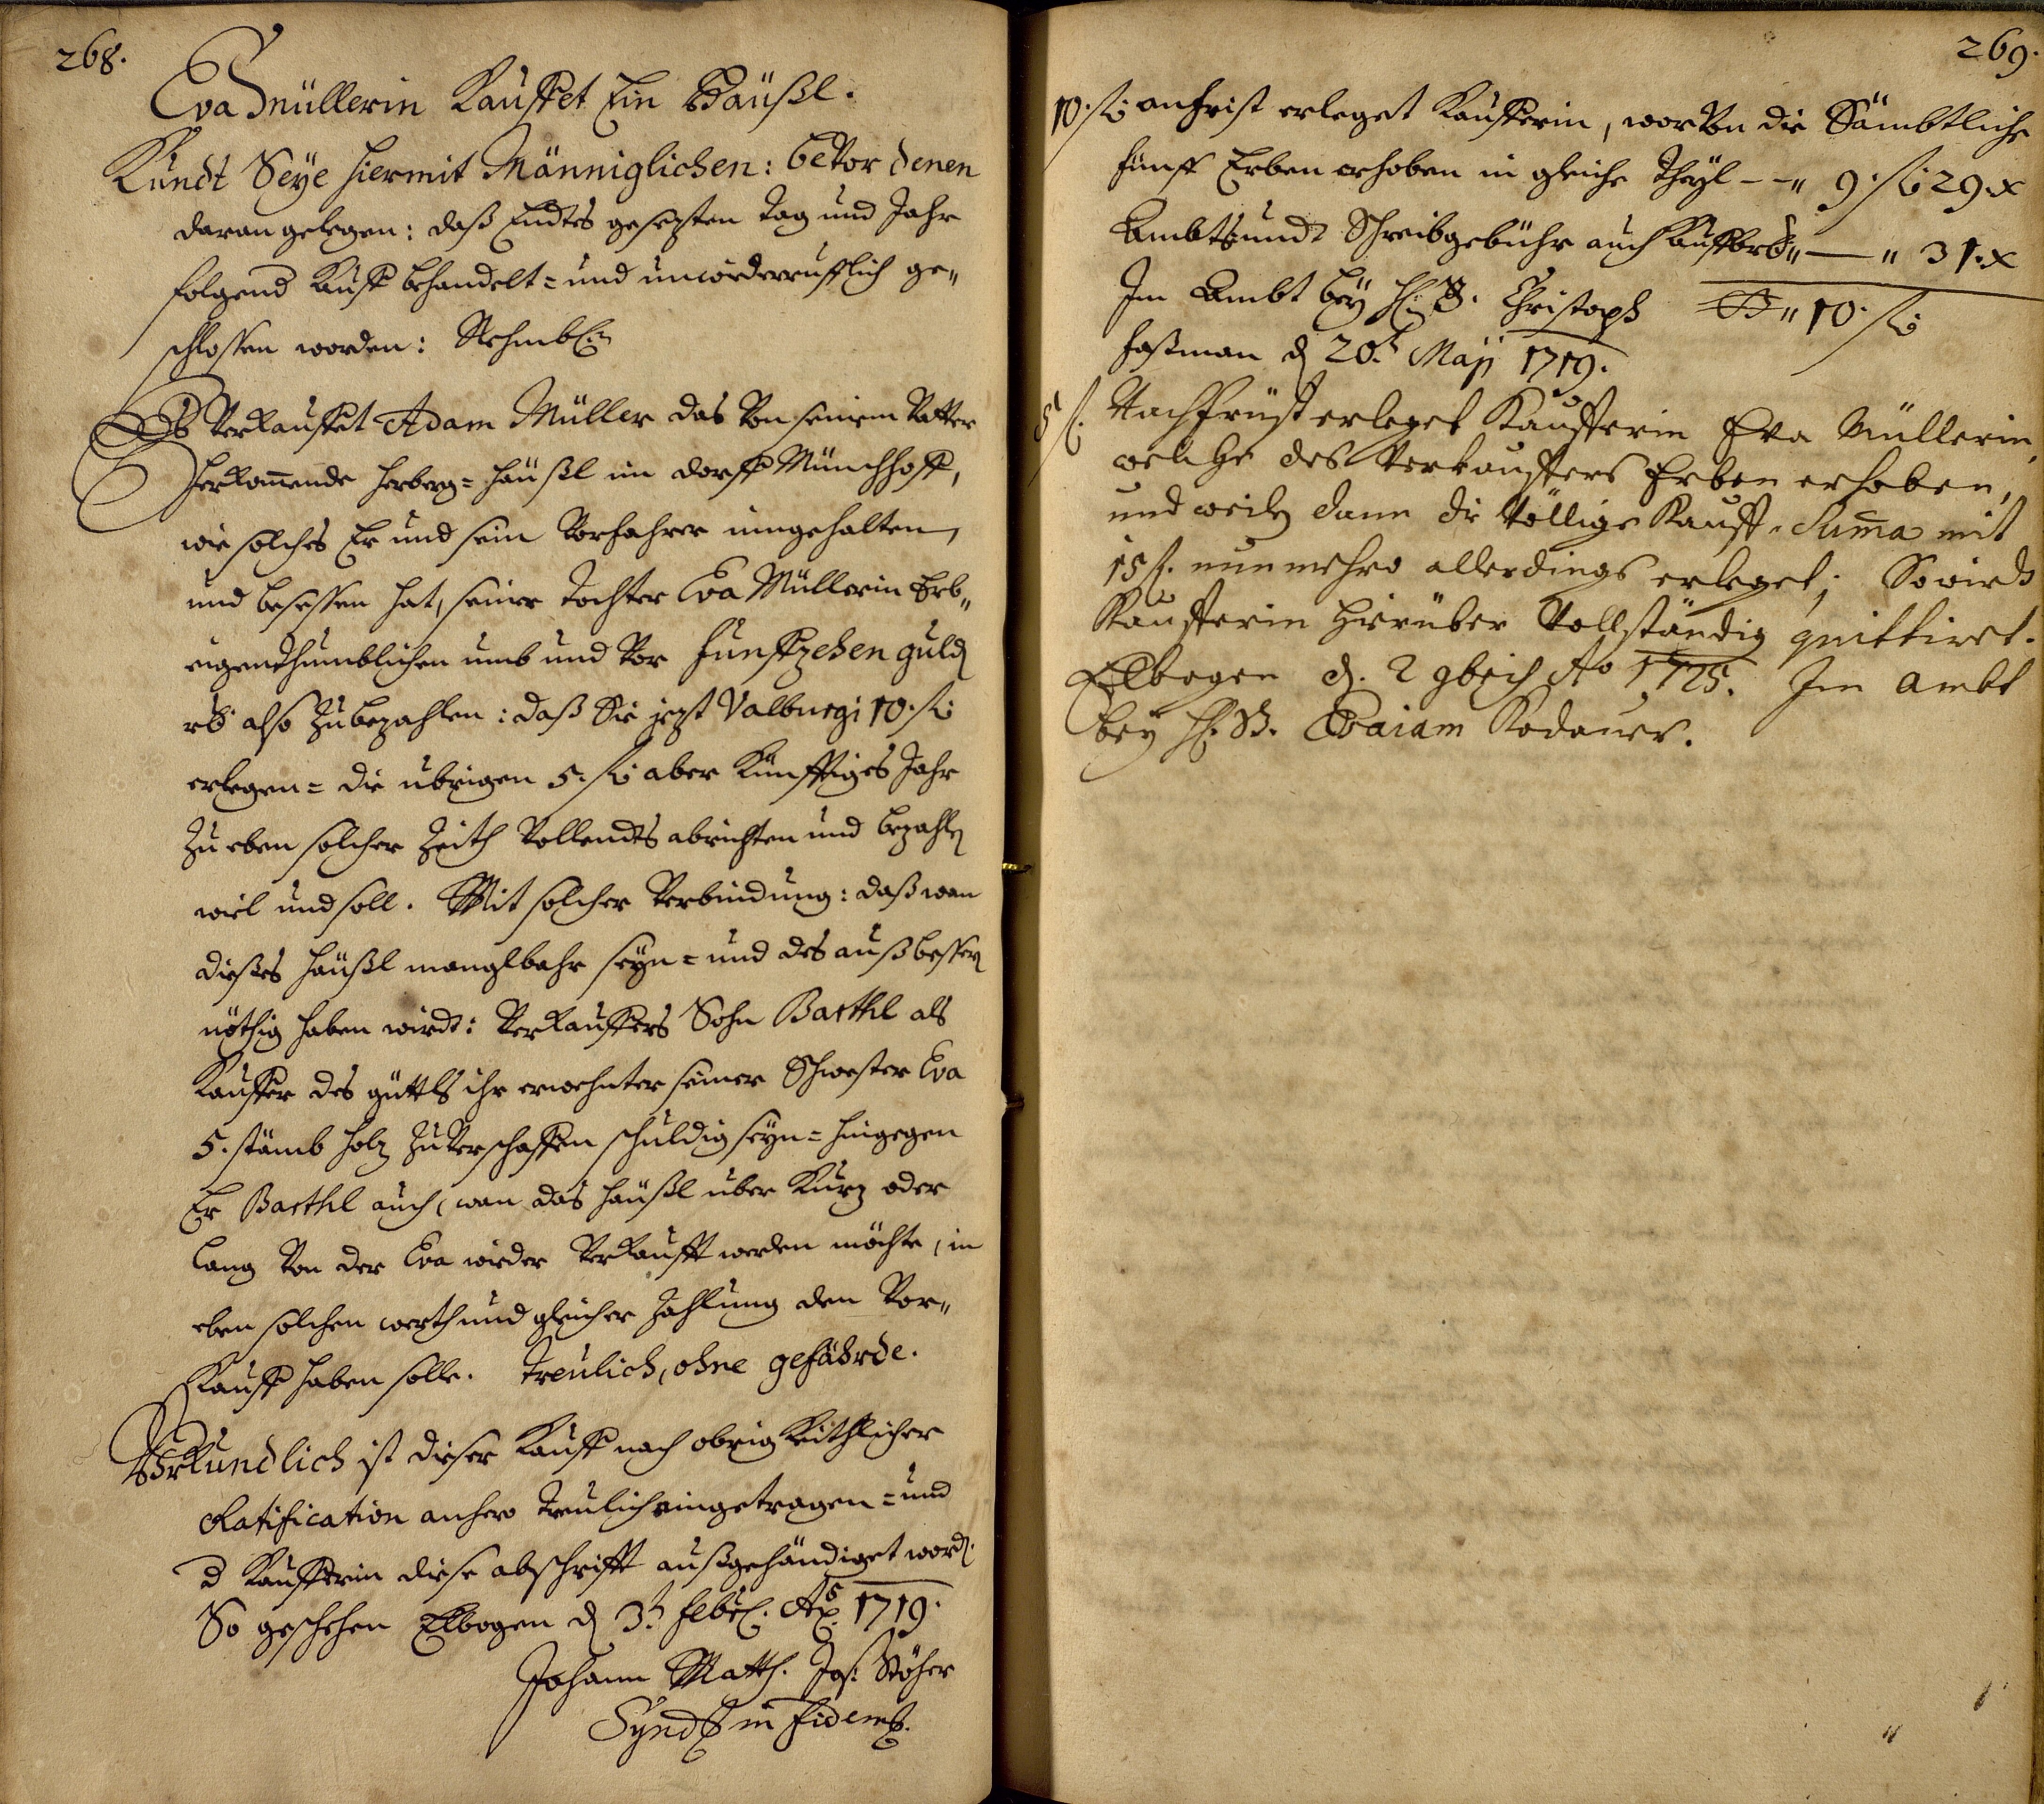 268.
Eva Müllerin Kauffet Ein Häußl.
Kundt Seye hiermit Männiglichen: bevor denen
daran gelegen: daß Endtes gesezten Tag und Jahr
folgend Kauff behandelt= und unwiderruefflich ge„
schlossen worden: Nehmbl:
Es Verkauffet Adam Müller das Von seinem Vatter
herkom̄ende herberg= häußl im dorff Münchhoff,
wie solches Er und sein Vorfahrer inngehalten,
und besessen hat, seiner Tochter Eva Müllerin Erb„
eigenthumblichen umb und Vor Funffzehen guld
rh. also Zu bezahlen: daß Sie jezt Valburgi 10. fl:
erlegen= die übrigen 5. fl: aber Künfftiges Jahr
Zu eben solcher Zeith Vollendts abrichten und bezahlen
wiel und soll. Mit solcher Verbindung: daß wan
dießes häußl manglbahr seyn= und des außbessern
nöthig haben wirdt: Verkauffers Sohn Barthl als
Kauffer des güttls ihr erwehnter seiner Schwester Eva
5. stämb holz Zu Verschaffen schuldig seyn= hingegen
Er Barthl auch, wan das häußl über Kurz oder
lang Von der Eva wieder Verkaufft werden möchte, in
eben solchen werth und gleicher Zahlung den Vor„
Kauff haben solle. Treulich, ohne gefährde.
Uhrkundlich ist dieser Kauff nach obrigkeithlicher
Ratification anhero treulich eingetragen= und
d Kaufferin diese abschrifft außgehändiget word.
So geschehen Elbogen d 3t. Febr. Ao. 1719.
Johann Matth. Jos: Stöhr
Synd in fidem.
269.
10. fl: anfrist erleget Kaufferin, worvon die Sämbtliche
fünff Erben erhoben in gleiche Theyl -- „ 9. fl: 29. x
Ambts undt Schreibgebühr auch Kauffbrs „ — „ 31. x
Im Ambt bey H. B. Christoph „ 10. fl:
Faßman d 20t. Maji 1719.
5 fl. Nachfrüst erleget Kaufferin Eva Müllerin,
welche des Verkauffers Erben erhoben,
und weilen dann die Völlige Kauff-Sum̄a mit
15 fl. nunmehro allerdings erleget; So wirdt
Kaufferin hierüber Vollständig quittiret.
Ellbogen d. 2 9bris Ao 1725. Im Ambt
bey H. B. Esaiam Kodauer.